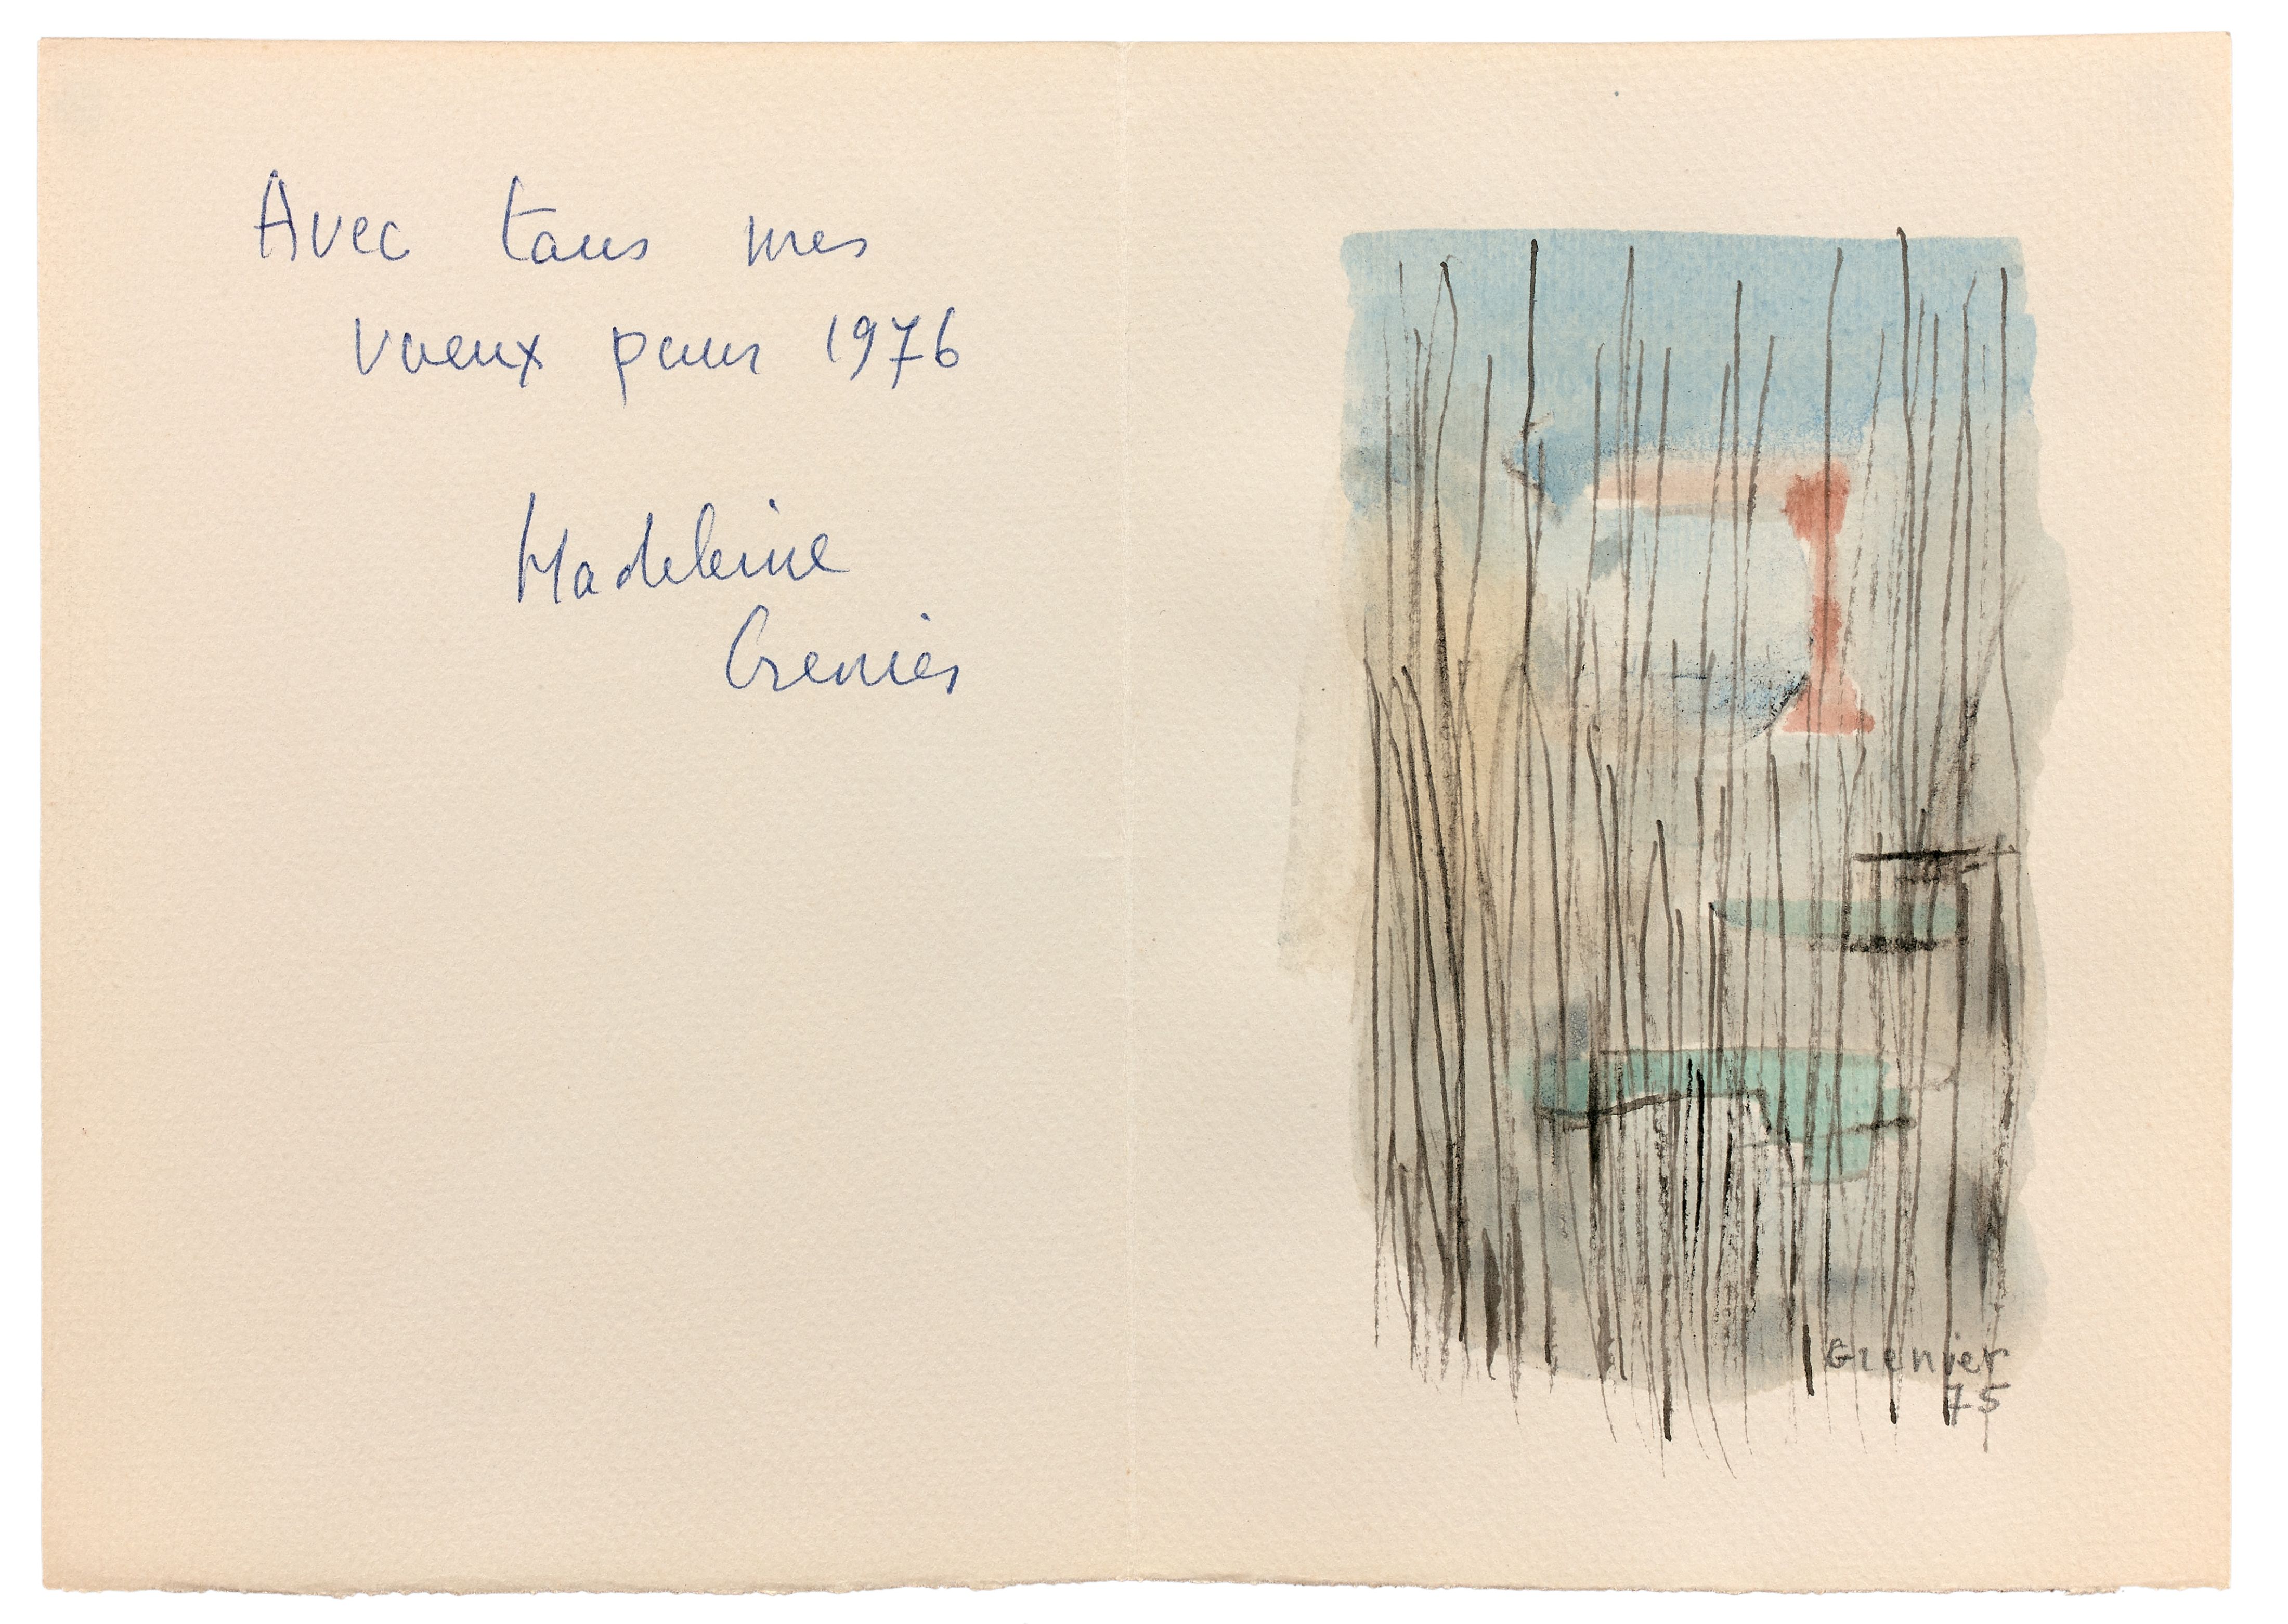 Avec tous mes
voeux pour 1976
Madeleine
Grenier
Grenier
75